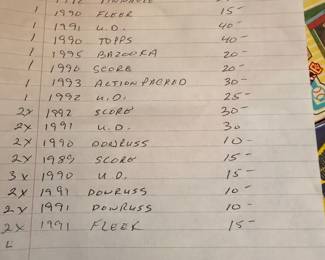 1 1990 FLEER 15-
1 1991 U.D. 40-
1 1990 TOPPS 40-
1 1995 BAZOOKA 20-
1 1990 SCORE 20-
1 1993 ACTION PACKED 30-
1 1992 U.D. 25-
2x 1992 SCORE 30-
2x 1991 U.D. 30
2x 1990 DONRUSS 10-
2x 1989 SCORE 15-
3x 1990 U.D. 15-
2x 1991 DONRUSS 10-
2x 1991 DONRUSS 10-
2x 1991 FLEER 15-
L